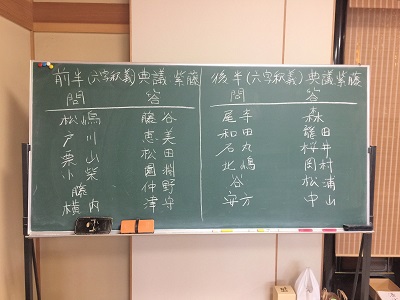 前半(六字釈義)典議 紫藤
問 答
松嶋 藤谷
戸川 恵美
栗山 松田
小柴
藤 仲野
横内 津守
後半(六字釈義)典議紫藤
問 答
尾寺 森
和田 龍田
石丸 桜井
北嶋 岡村
谷 松浦
安方 中山